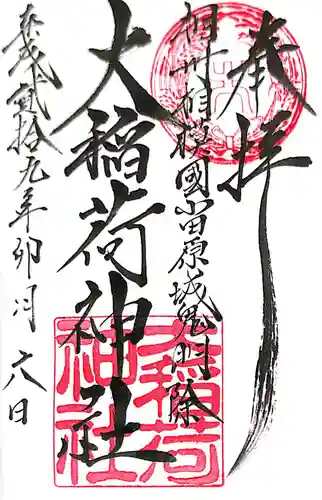 奉拝
相州相模國小田原城鬼門除
大稲荷神社
平成貮拾九年卯月六八日
大稲荷神社